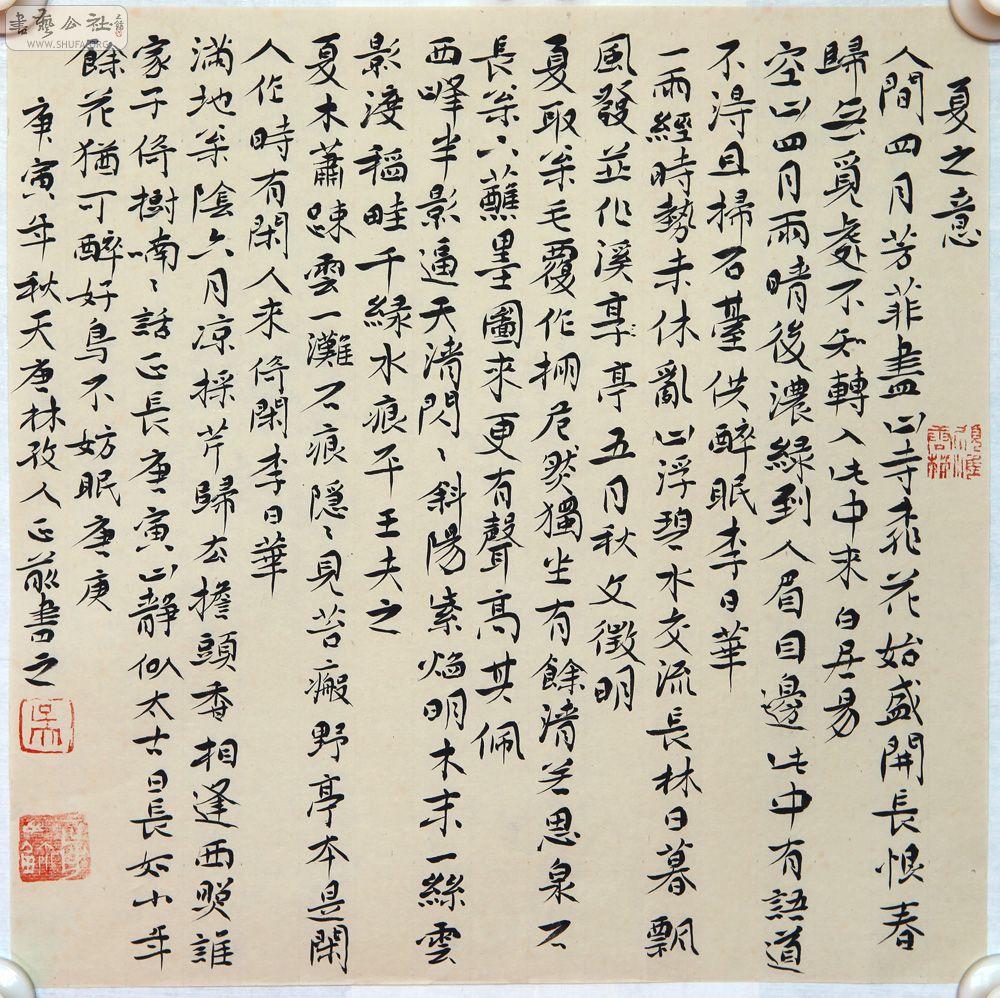 夏之意
人間四月芳菲盡山寺桃花始盛開長恨春
歸無覓處不知轉入此中來白居易
空山四月雨晴後濃綠到人眉目邊此中有語道
不得且掃石臺供醉眠李日華
一雨經時勢未休亂山浮碧水交流長林日暮飄
風發並作溪享亭五月秋文徵明
夏取枀毛覆作棚危然獨坐有餘清若思泉石
長枀下蘸墨圖來更有聲高其佩
西峰半影逼天清閃〻斜陽紫焰明木末一絲雲
影渡稻畦千綠水痕平王夫之
夏木蕭疎雲一灘石痕隱〻見苔瘢野亭本是閑
人作時有閑人來倚閑李日華
滿地枀陰六月涼採芹歸去擔頭香相逢西照誰
家子倚樹喃〻話正長唐寅山靜似太古日長如小年
餘花猶可醉好鳥不妨眠唐庚
庚寅年秋天唐林孜人正書之
吳
書藝公社
WWW.SHUFA.ORG